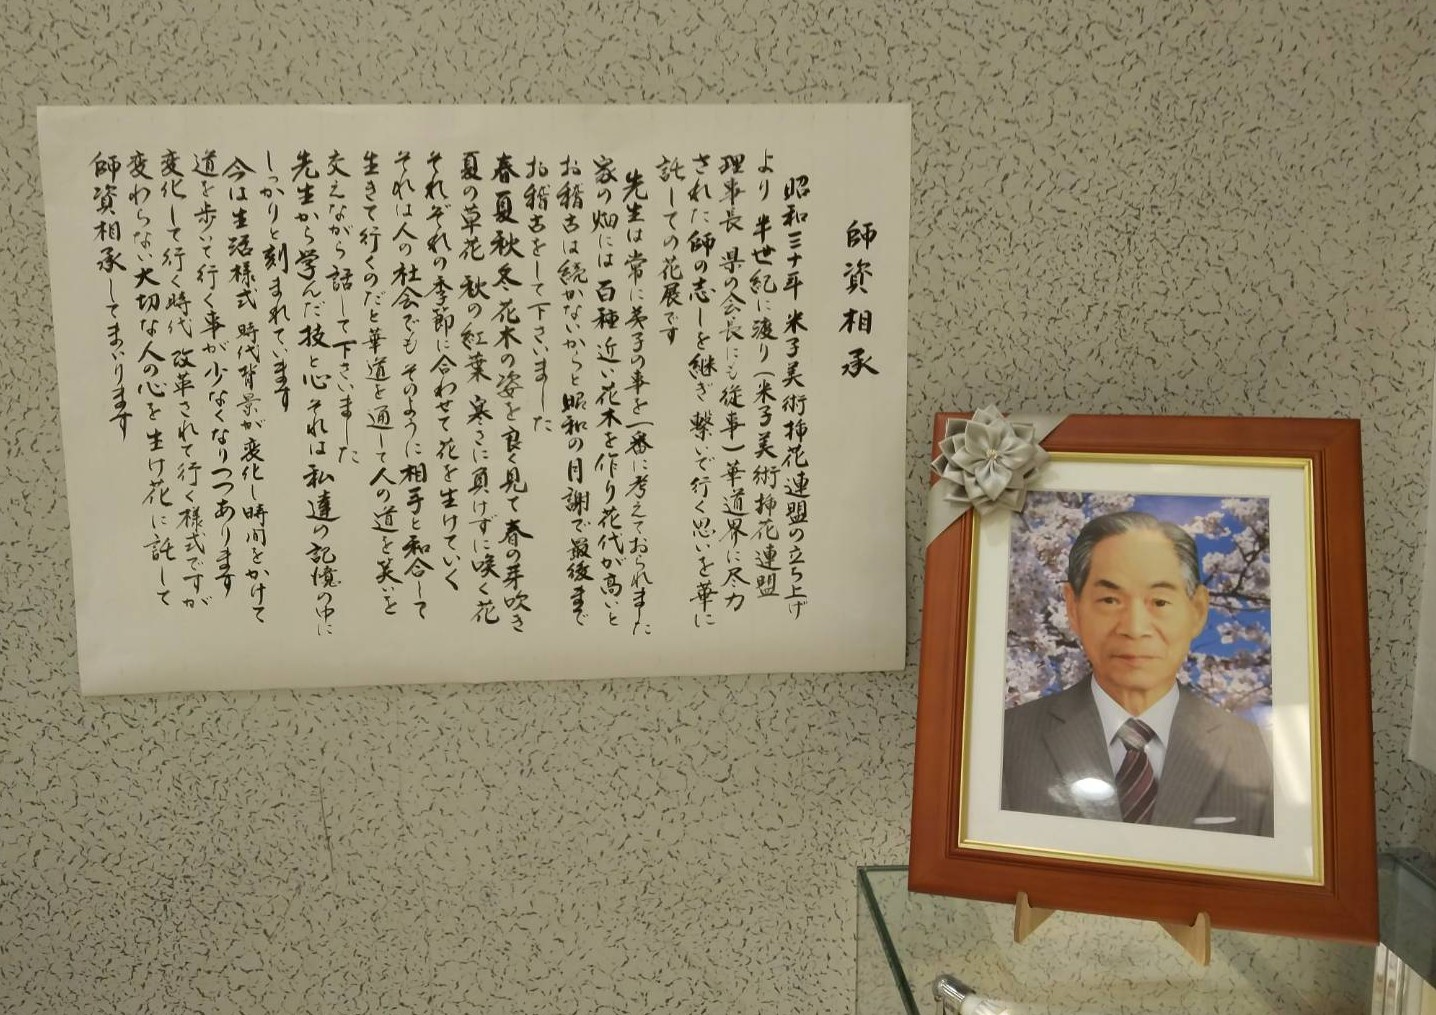 師資相承
昭和三十年 米子美術挿花連盟の立ち上げ
より 半世紀に渡り(米子美術挿花連盟
理事長 県の会長にも従事)華道界に尽力
された師の志しを継ぎ繋いで行く思いを華に
託しての花展です
先生は常に弟子の事を一番に考えておられました
家の畑には百種近い花木を作り花代が高いと
お稽古は続かないからと昭和の月謝で最後まで
お稽古をして下さいました
春夏秋冬花木の姿を良く見て春の芽吹き
夏の草花 秋の紅葉 寒さに負けずに咲く花
それぞれの季節に合わせて花を生けていく
それは人の社会でもそのように相手と和合して
生きて行くのだと華道を通して人の道を笑いを
交えながら話して下さいました
先生から学んだ技と心 それは私達の記憶の中に
しっかりと刻まれています
今は生活様式 時代背景が変化し時間をかけて
道を歩いて行く事が少なくなりつつあります
変化して行く時代 改革されて行く様式ですが
変わらない大切な人の心を生け花に託して
師資相承してまいります